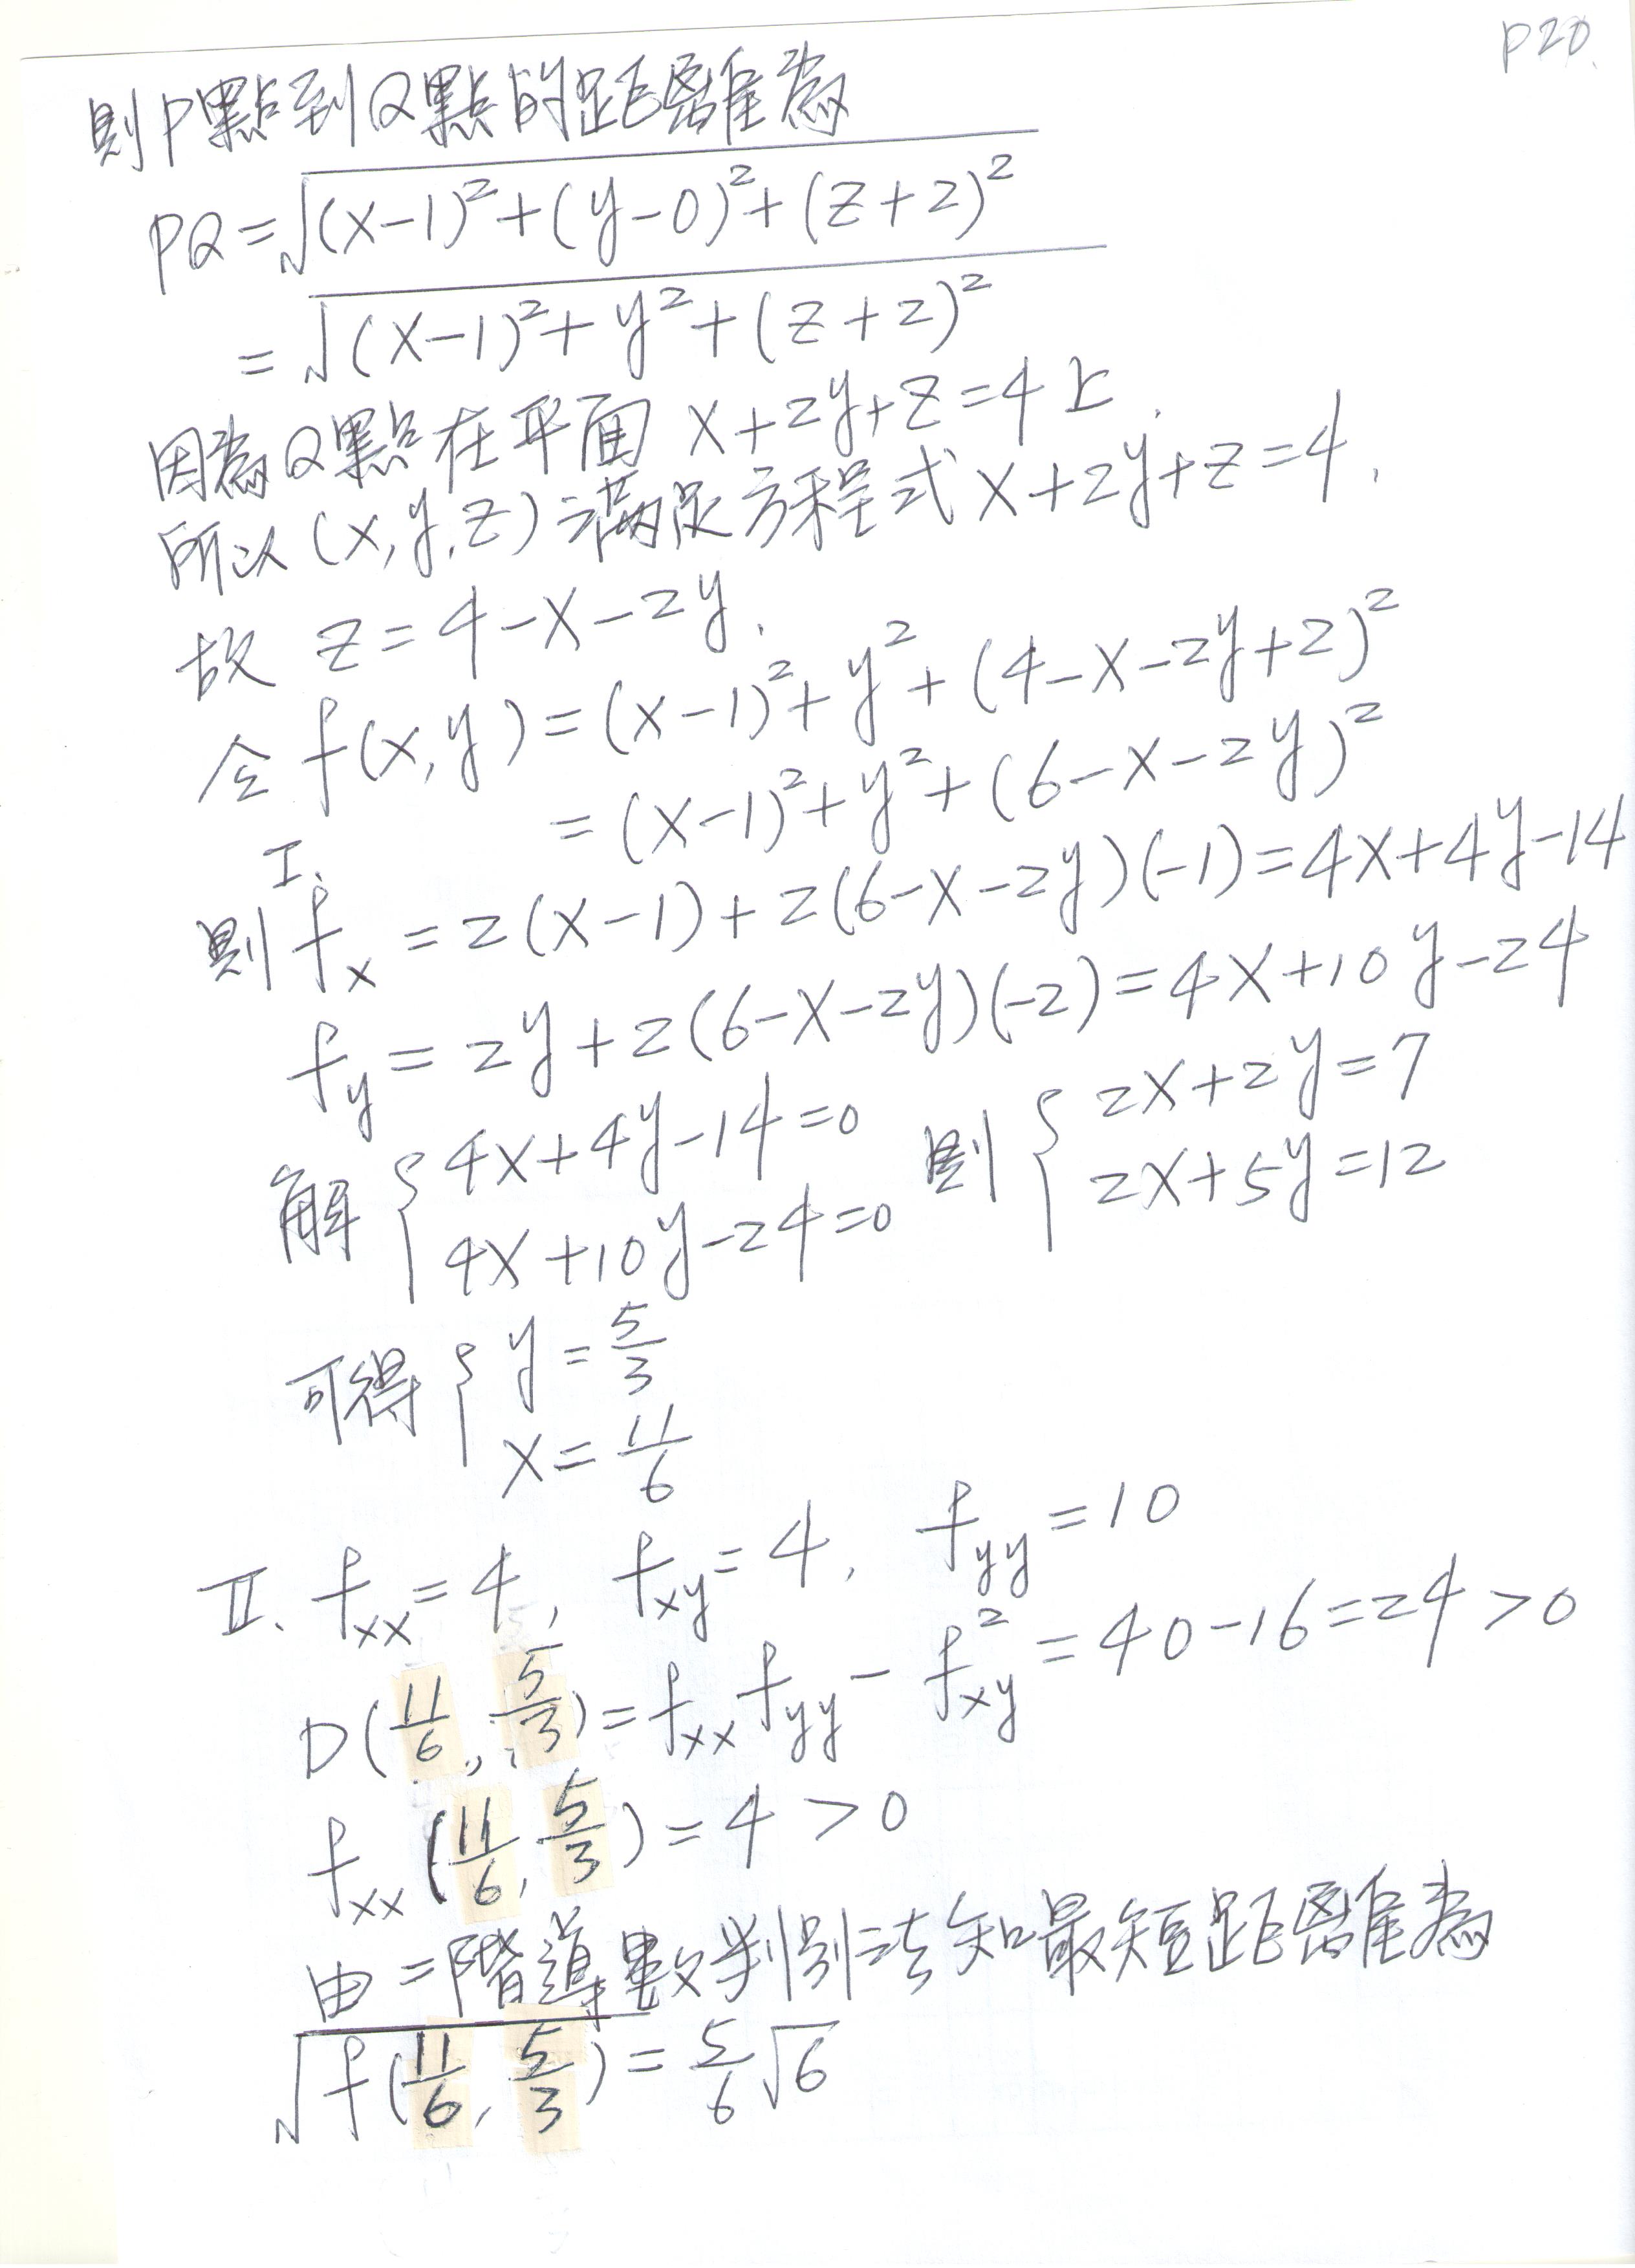 P20.
則P點到Q點的距離為
PQ=√((x-1)²+(y-0)²+(z+2)²)
=√((x-1)²+y²+(z+2)²)
因為Q點在平面 x+2y+z=4上.
所以(x,y,z)滿足方程式x+2y+z=4.
故 z=4-x-2y.
令 f(x,y)=(x-1)²+y²+(4-x-2y+2)²
=(x-1)²+y²+(6-x-2y)²
I.
則 f_x=2(x-1)+2(6-x-2y)(-1)=4x+4y-14
f_y=2y+2(6-x-2y)(-2)=4x+10y-24
解 { 4x+4y-14=0 則 { 2x+2y=7
4x+10y-24=0 2x+5y=12
可得 { y=5/3
x=11/6
II. f_xx=4, f_xy=4, f_yy=10
D(11/6, 5/3)=f_xx f_yy - f_xy²=40-16=24>0
f_xx(11/6, 5/3)=4>0
由二階導數判別法知最短距離為
√f(11/6, 5/3)=5/6√6